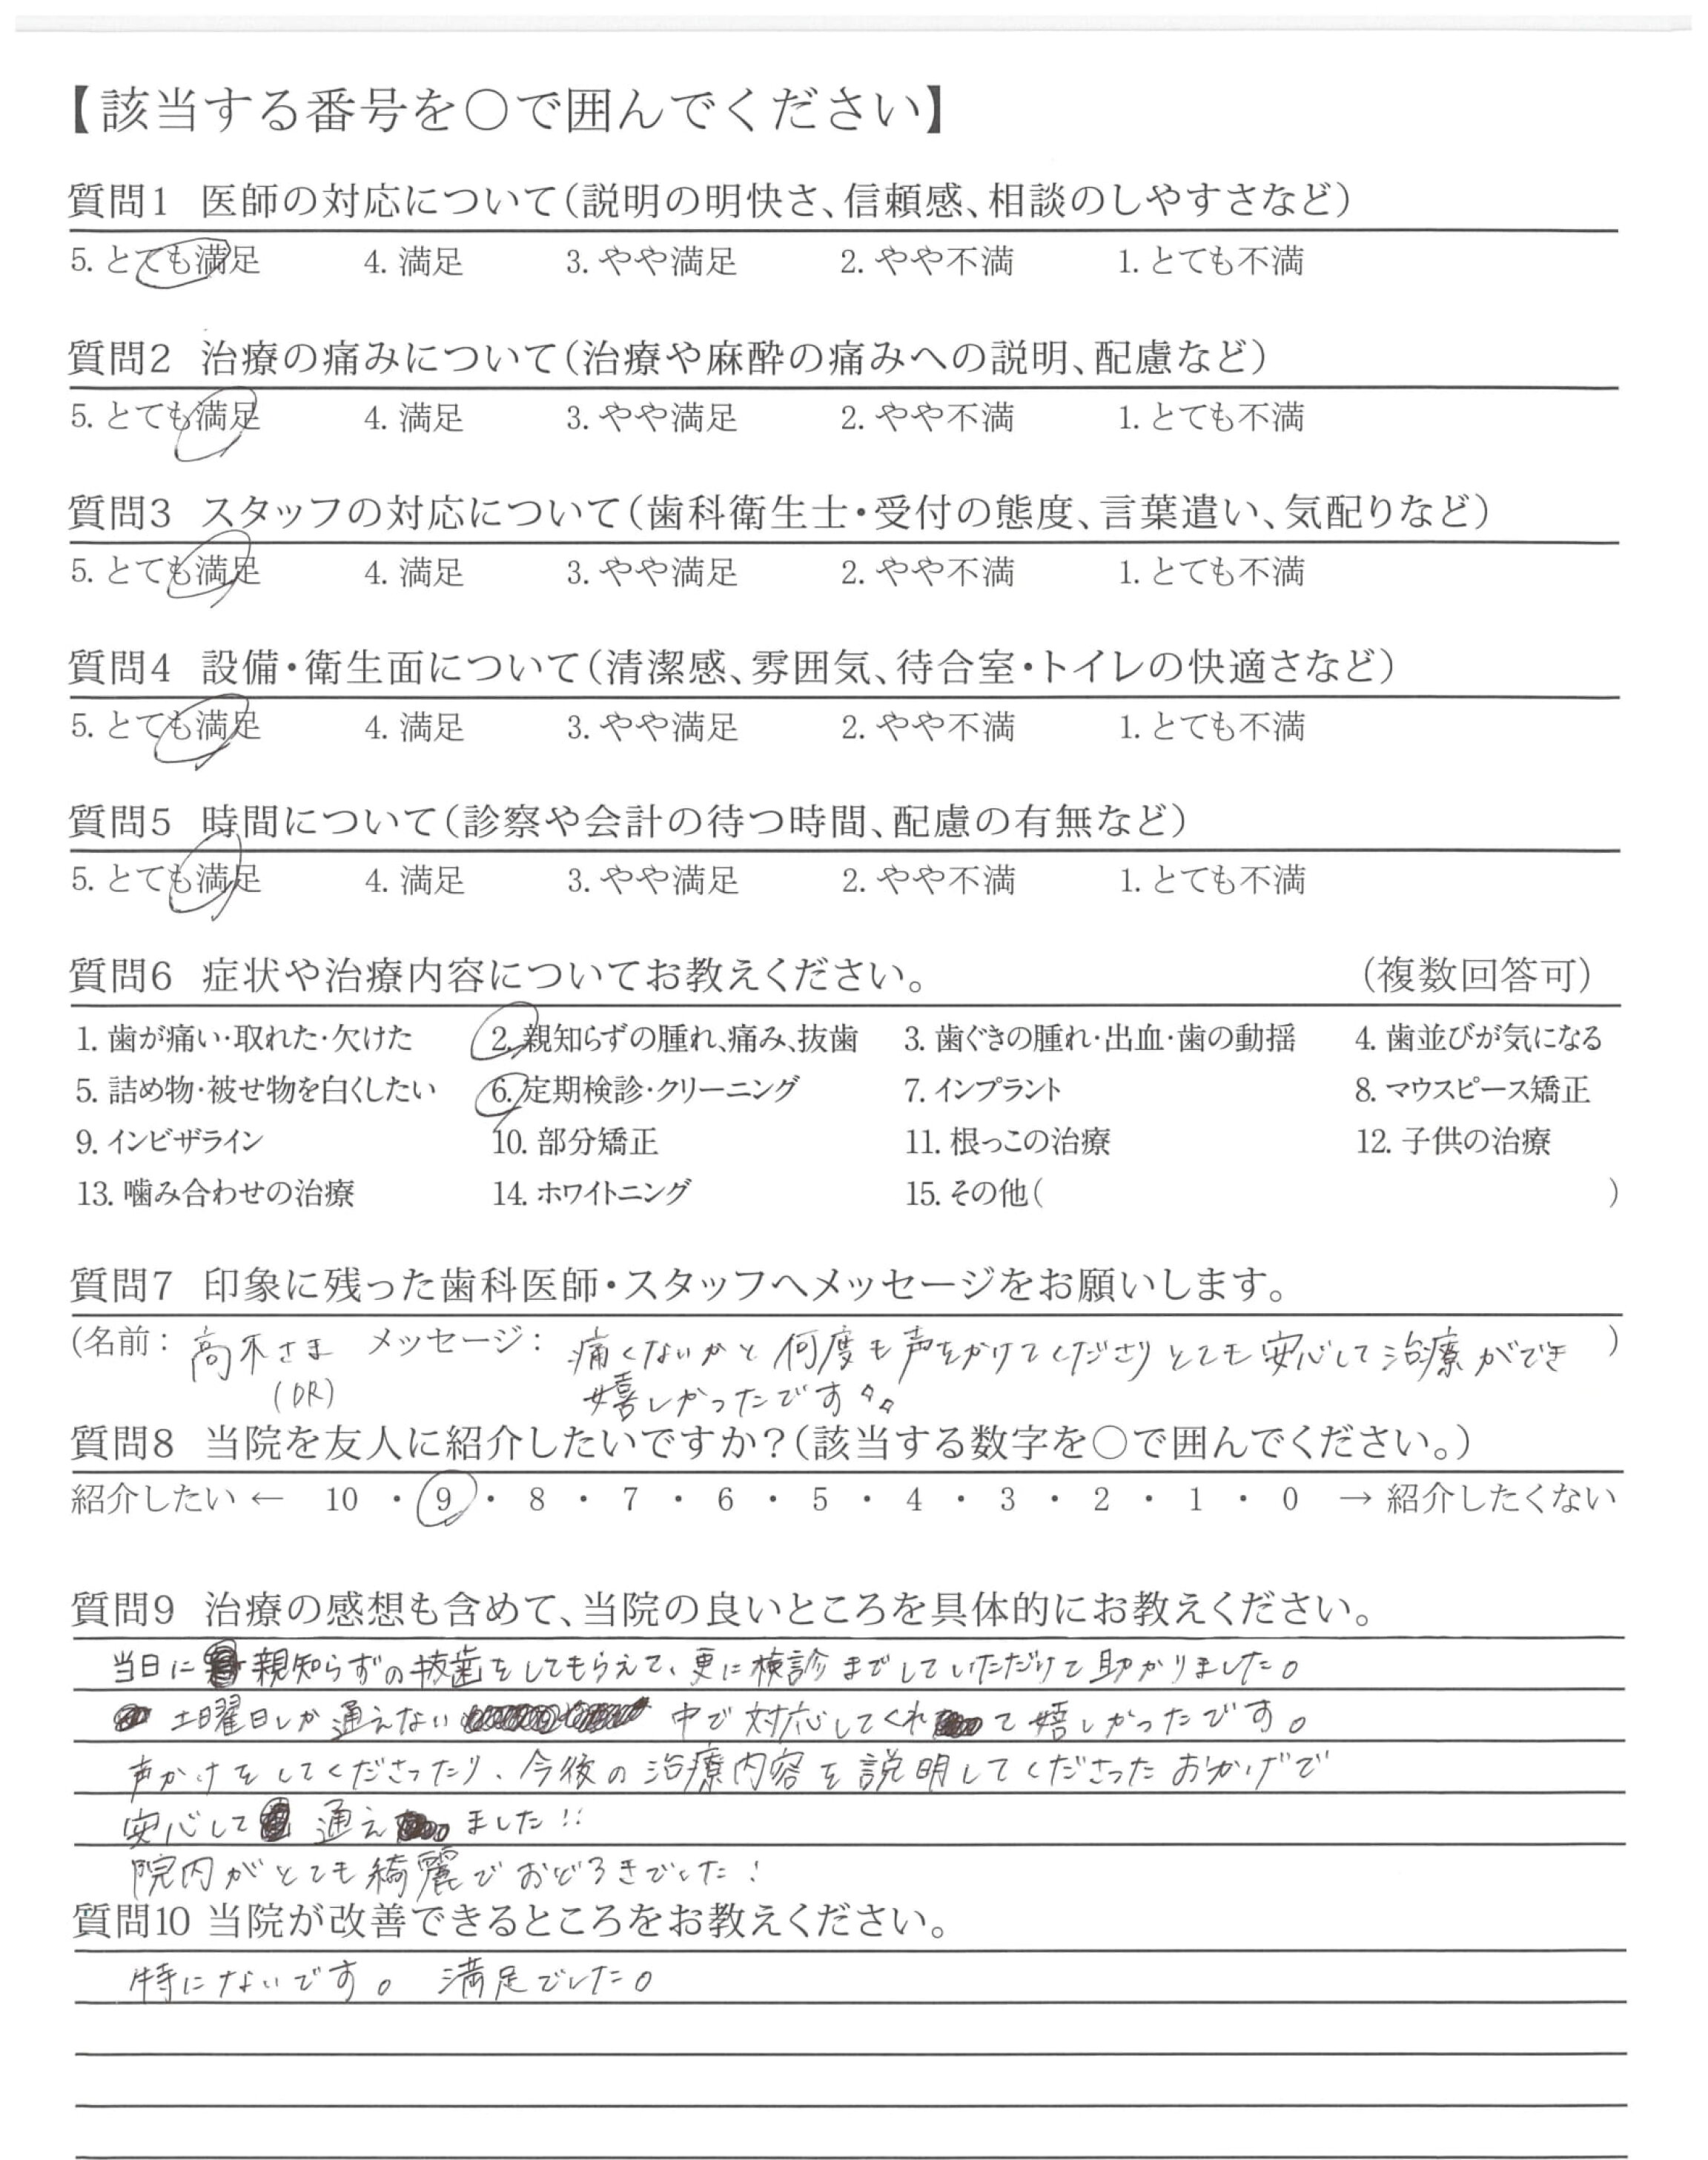 【該当する番号を○で囲んでください】
質問1 医師の対応について（説明の明快さ、信頼感、相談のしやすさなど）
5. とても満足 4. 満足 3. やや満足 2. やや不満 1. とても不満
質問2 治療の痛みについて（治療や麻酔の痛みへの説明、配慮など）
5. とても満足 4. 満足 3. やや満足 2. やや不満 1. とても不満
質問3 スタッフの対応について（歯科衛生士・受付の態度、言葉遣い、気配りなど）
5. とても満足 4. 満足 3. やや満足 2. やや不満 1. とても不満
質問4 設備・衛生面について（清潔感、雰囲気、待合室・トイレの快適さなど）
5. とても満足 4. 満足 3. やや満足 2. やや不満 1. とても不満
質問5 時間について（診察や会計の待つ時間、配慮の有無など）
5. とても満足 4. 満足 3. やや満足 2. やや不満 1. とても不満
質問6 症状や治療内容についてお教えください。 （複数回答可）
1. 歯が痛い・取れた・欠けた 2. 親知らずの腫れ、痛み、抜歯 3. 歯ぐきの腫れ・出血・歯の動揺 4. 歯並びが気になる
5. 詰め物・被せ物を白くしたい 6. 定期検診・クリーニング 7. インプラント 8. マウスピース矯正
9. インビザライン 10. 部分矯正 11. 根っこの治療 12. 子供の治療
13. 噛み合わせの治療 14. ホワイトニング 15. その他（ ）
質問7 印象に残った歯科医師・スタッフへメッセージをお願いします。
（名前： 高木さま メッセージ： 痛くないかと何度も声をかけてくださりとても安心して治療ができ ）
(DR) 嬉しかったです
質問8 当院を友人に紹介したいですか？（該当する数字を○で囲んでください。）
紹介したい ← 10 ・ 9 ・ 8 ・ 7 ・ 6 ・ 5 ・ 4 ・ 3 ・ 2 ・ 1 ・ 0 → 紹介したくない
質問9 治療の感想も含めて、当院の良いところを具体的にお教えください。
当日に親知らずの抜歯をしてもらえて、更に検診までしていただけて助かりました。
土曜日しか通えない中で対応してくれて嬉しかったです。
声かけをしてくださったり、今後の治療内容を説明してくださったおかげで
安心して通えました!!
院内がとても綺麗でおどろきでした！
質問10 当院が改善できるところをお教えください。
特にないです。 満足でした。